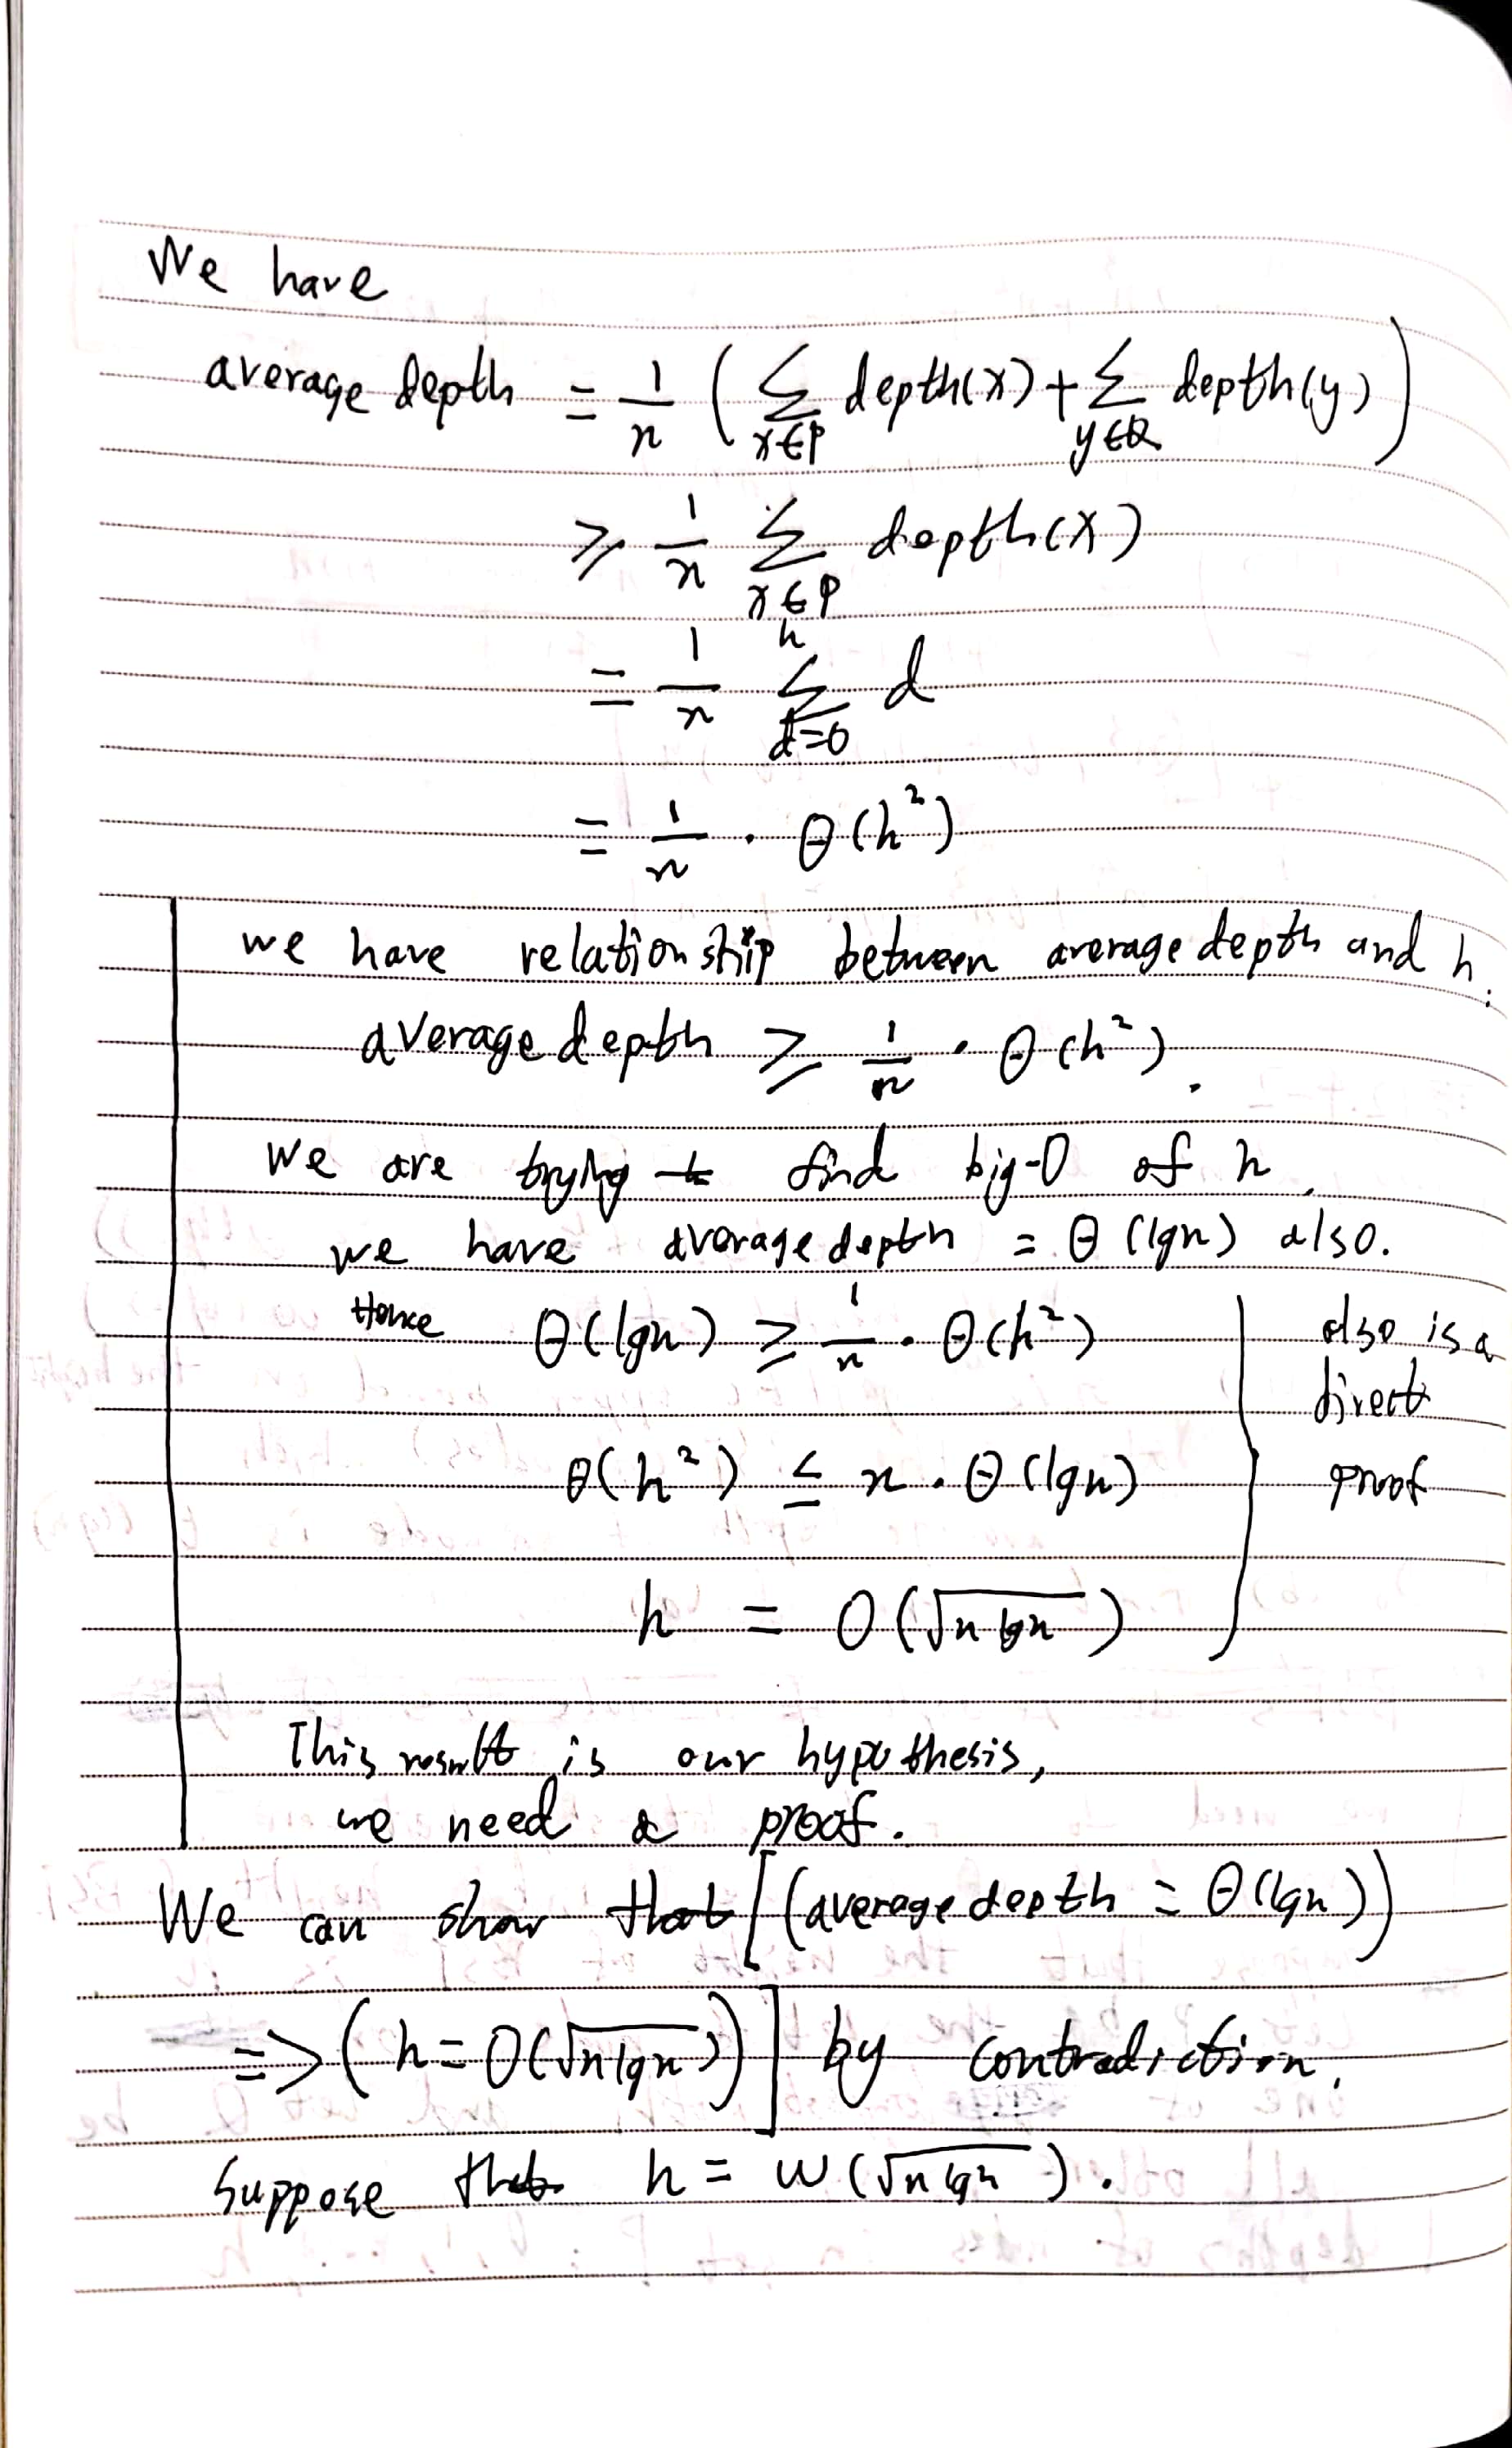 We have
average depth = 1/n ( Σ_{x∈P} depth(x) + Σ_{y∈Q} depth(y) )
≥ 1/n Σ_{x∈P} depth(x)
= 1/n Σ_{d=0}^{h} d
= 1/n · Θ(h²)
we have relationship between average depth and h:
average depth ≥ 1/n · Θ(h²).
We are trying to find big-O of h.
we have average depth = Θ(lgn) also.
Hence Θ(lgn) ≥ 1/n · Θ(h²)
also is a
direct
Θ(h²) ≤ n · Θ(lgn)
proof
h = O(√(n lgn))
This result is our hypothesis,
we need a proof.
We can show that [(average depth = Θ(lgn))
=> (h = O(√(n lgn)))] by contradiction.
Suppose that h = ω(√(n lgn)).